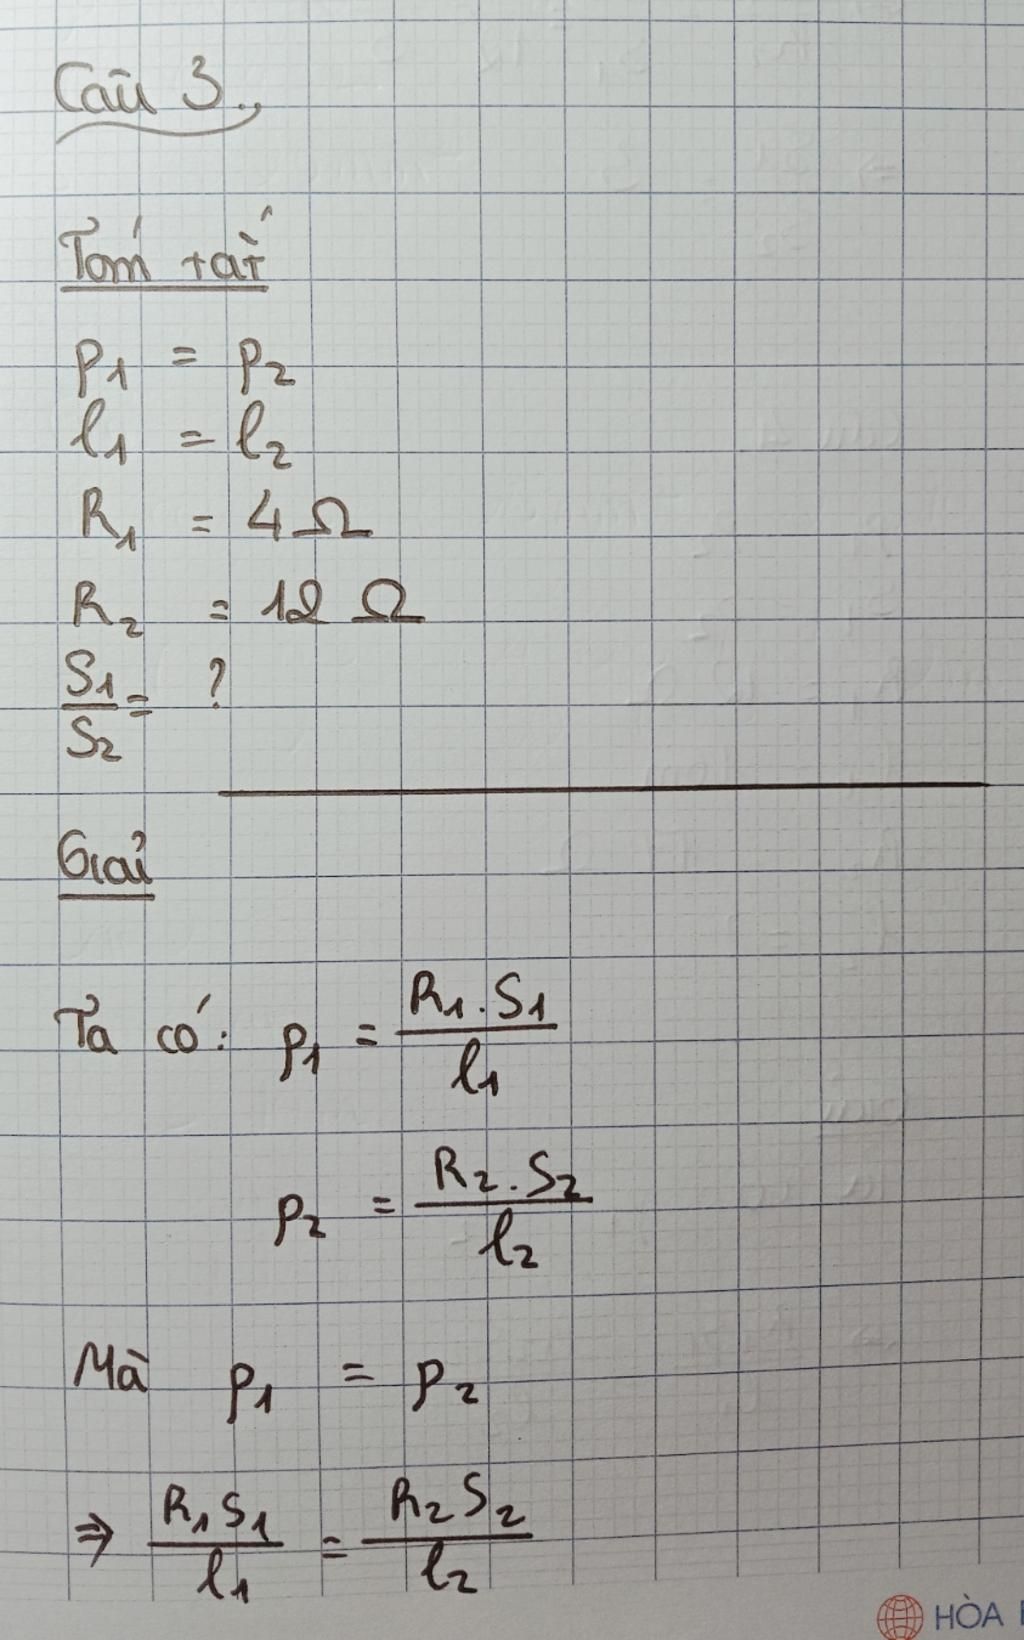 Câu 3.,
Tóm tắt
ρ1 = ρ2
l1 = l2
R1 = 4 Ω
R2 = 12 Ω
S1/S2 = ?
Giải
Ta có: ρ1 = R1.S1/l1
ρ2 = R2.S2/l2
Mà ρ1 = ρ2
⇒ R1S1/l1 = R2S2/l2
HÒA